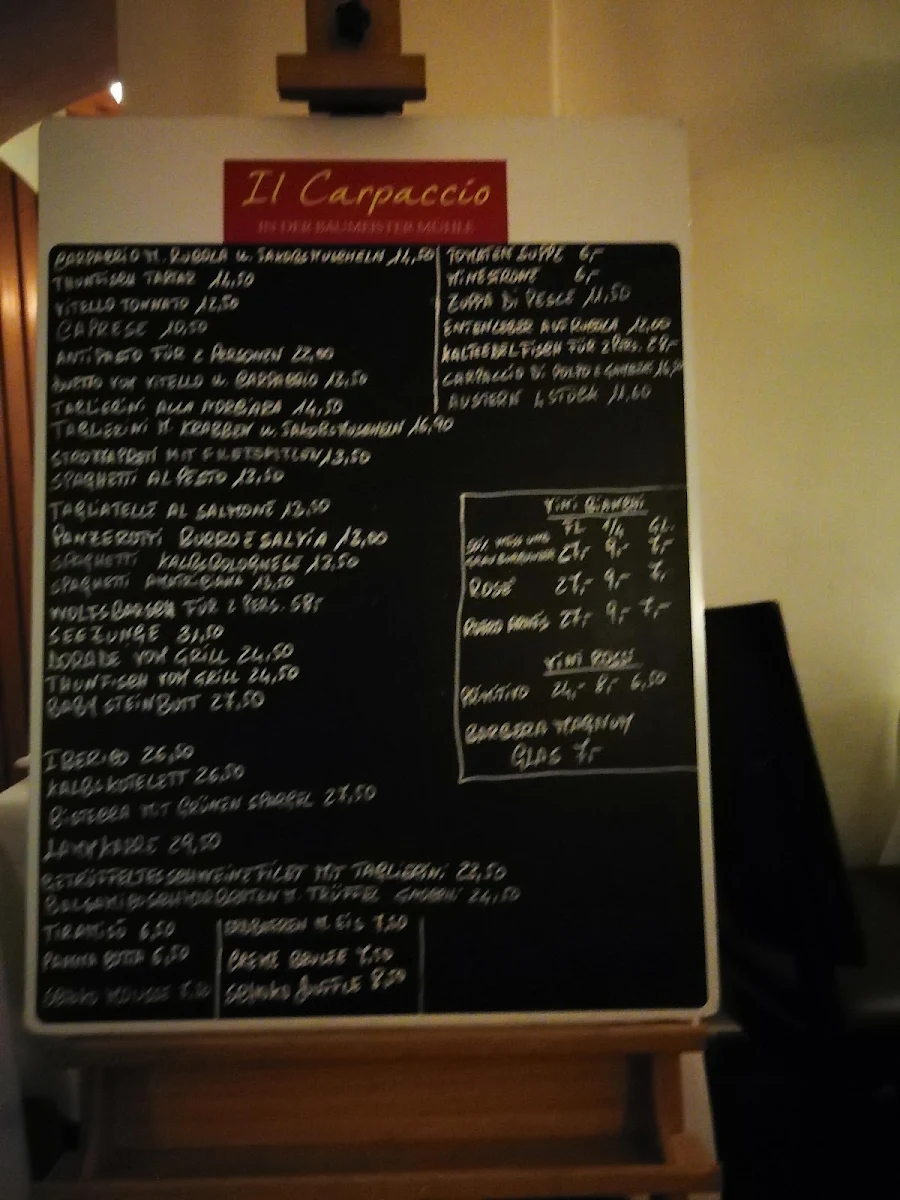 Il Carpaccio
IN DER BAUMEISTER MÜHLE
CARPACCIO M. RUCOLA U. JAKOBSMUSCHELN 14,50
THUNFISCH TARTAR 14,50
VITELLO TONNATO 12,50
CAPRESE 10,50
ANTIPASTO FÜR 2 PERSONEN 22,00
DUETTO VOM VITELLO U. CARPACCIO 13,50
TAGLIERINI ALLA NORCIARA 14,50
TAGLIERINI M. KRABBEN U. JAKOBSMUSCHELN 16,90
STROZZAPRETI MIT FILETSPITZEN 13,50
SPAGHETTI AL PESTO 13,50
TAGLIATELLE AL SALMONE 13,50
PANZEROTTI BURRO E SALVIA 13,00
SPAGHETTI KALBSBOLOGNESE 13,50
SPAGHETTI AMATRICIANA 13,50
WOLFSBARSCH FÜR 2 PERS. 58,-
SEEZUNGE 31,50
DORADE VOM GRILL 24,50
THUNFISCH VOM GRILL 24,50
BABY STEINBUTT 27,50
IBERICO 26,50
KALBSKOTELETT 26,50
BISTECCA MIT GRÜNEN SPARGEL 27,50
LAMMKARRE 29,50
GETRÜFFELTES SCHWEINEFILET MIT TAGLIERINI 22,50
BALSAMICOSCHMORBRATEN M. TRÜFFEL 24,50
TIRAMISÚ 6,50
PANNA COTTA 6,50
SCHOKO MOUSSE
ERDBEEREN M. EIS 7,50
CREME BRULEE 7,50
SCHOKO SUFFLE 8,50
TOMATEN SUPPE 6,-
MINESTRONE 6,-
ZUPPA DI PESCE 11,50
ENTENLEBER AUF RUCOLA 12,00
KALTE EDELFISCH FÜR 2 PERS. 28,-
CARPACCIO DI POLPO E GAMBERI
AUSTERN 4 STÜCK 11,60
VINI BIANCHI
FL. 1/4 GL.
27,- 9,- 7,-
ROSÉ 27,- 9,- 7,-
ROERO ARNEIS 27,- 9,- 7,-
VINI ROSSI
PRIMITIVO 24,- 8,- 6,50
BARBERA MAGNUM
GLAS 7,-